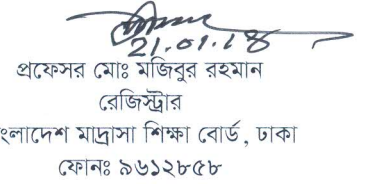 21.01.18
প্রফেসর মোঃ মজিবুর রহমান
রেজিস্ট্রার
ংলাদেশ মাদ্রাসা শিক্ষা বোর্ড, ঢাকা
ফোনঃ ৯৬১২৮৫৮